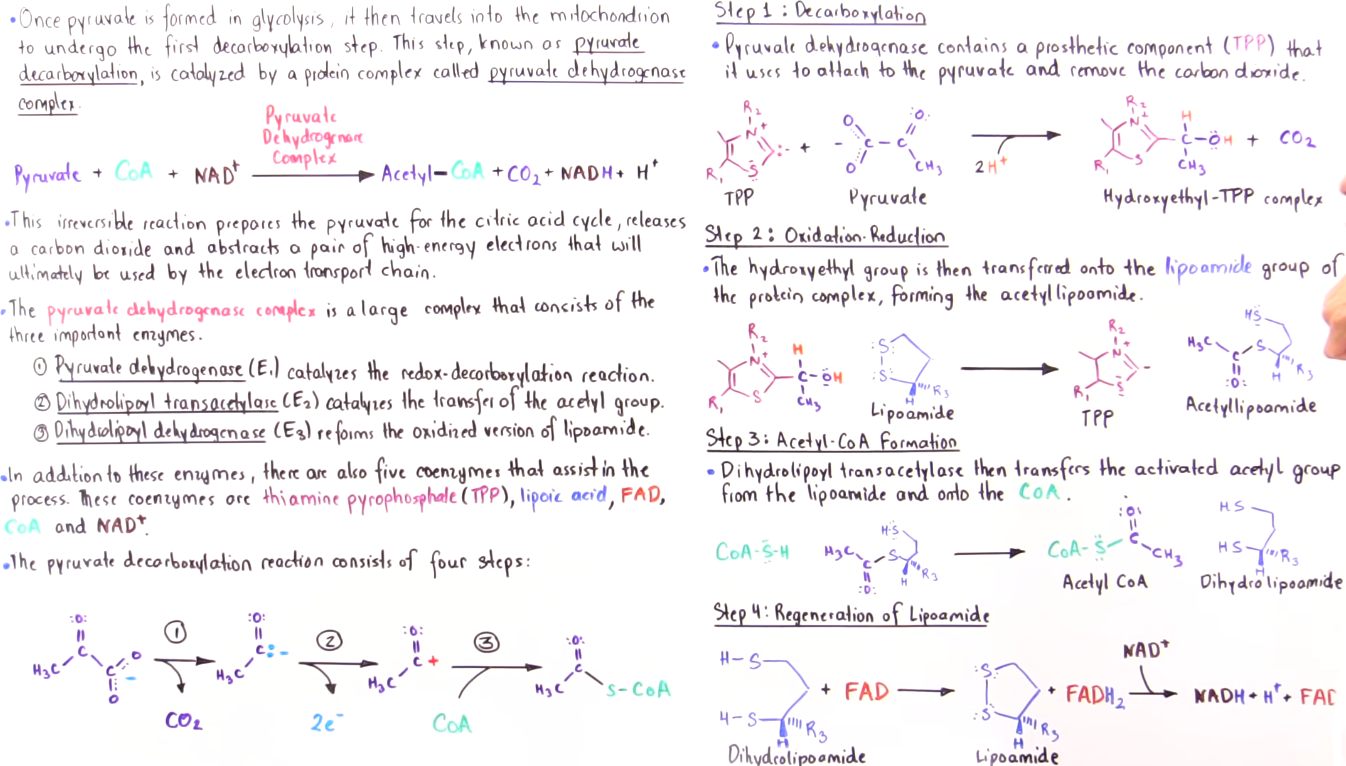 •Once pyruvate is formed in glycolysis, it then travels into the mitochondrion
to undergo the first decarboxylation step. This step, known as pyruvate
decarboxylation, is catalyzed by a protein complex called pyruvate dehydrogenase
complex.
Pyruvate
Dehydrogenase
Complex
Pyruvate + CoA + NAD⁺ → Acetyl-CoA + CO₂ + NADH + H⁺
•This irreversible reaction prepares the pyruvate for the citric acid cycle, releases
a carbon dioxide and abstracts a pair of high-energy electrons that will
ultimately be used by the electron transport chain.
•The pyruvate dehydrogenase complex is a large complex that consists of the
three important enzymes.
① Pyruvate dehydrogenase (E₁) catalyzes the redox-decarboxylation reaction.
② Dihydrolipoyl transacetylase (E₂) catalyzes the transfer of the acetyl group.
③ Dihydrolipoyl dehydrogenase (E₃) reforms the oxidized version of lipoamide.
•In addition to these enzymes, there are also five coenzymes that assist in the
process. These coenzymes are thiamine pyrophosphate (TPP), lipoic acid, FAD,
CoA and NAD⁺.
•The pyruvate decarboxylation reaction consists of four steps:
:O: ① :O: ② :O: ③ :O:
H₃C C C O O - H₃C C: - H₃C C + H₃C C S-CoA
CO₂ 2e⁻ CoA
Step 1: Decarboxylation
•Pyruvate dehydrogenase contains a prosthetic component (TPP) that
it uses to attach to the pyruvate and remove the carbon dioxide.
R₂ N⁺ S R₁ :- + - O O C-C O: CH₃ → R₂ N⁺ S R₁ H C-ÖH CH₃ + CO₂
2H⁺
TPP Pyruvate Hydroxyethyl-TPP complex
Step 2: Oxidation-Reduction
•The hydroxyethyl group is then transferred onto the lipoamide group of
the protein complex, forming the acetyllipoamide.
R₂ N⁺ S R₁ H C-ÖH CH₃ :S: :S H R₃ → R₂ N⁺ S R₁ - HS H₃C C S :O: H R₃
Lipoamide TPP Acetyllipoamide
Step 3: Acetyl-CoA Formation
•Dihydrolipoyl transacetylase then transfers the activated acetyl group
from the lipoamide and onto the CoA.
CoA-S-H H₃C C S H-S :O: H R₃ → CoA-S C :O: CH₃ HS HS H R₃
Acetyl CoA Dihydrolipoamide
Step 4: Regeneration of Lipoamide
NAD⁺
H-S H-S H R₃ + FAD → :S :S H R₃ + FADH₂ → NADH + H⁺ + FAD
Dihydrolipoamide Lipoamide